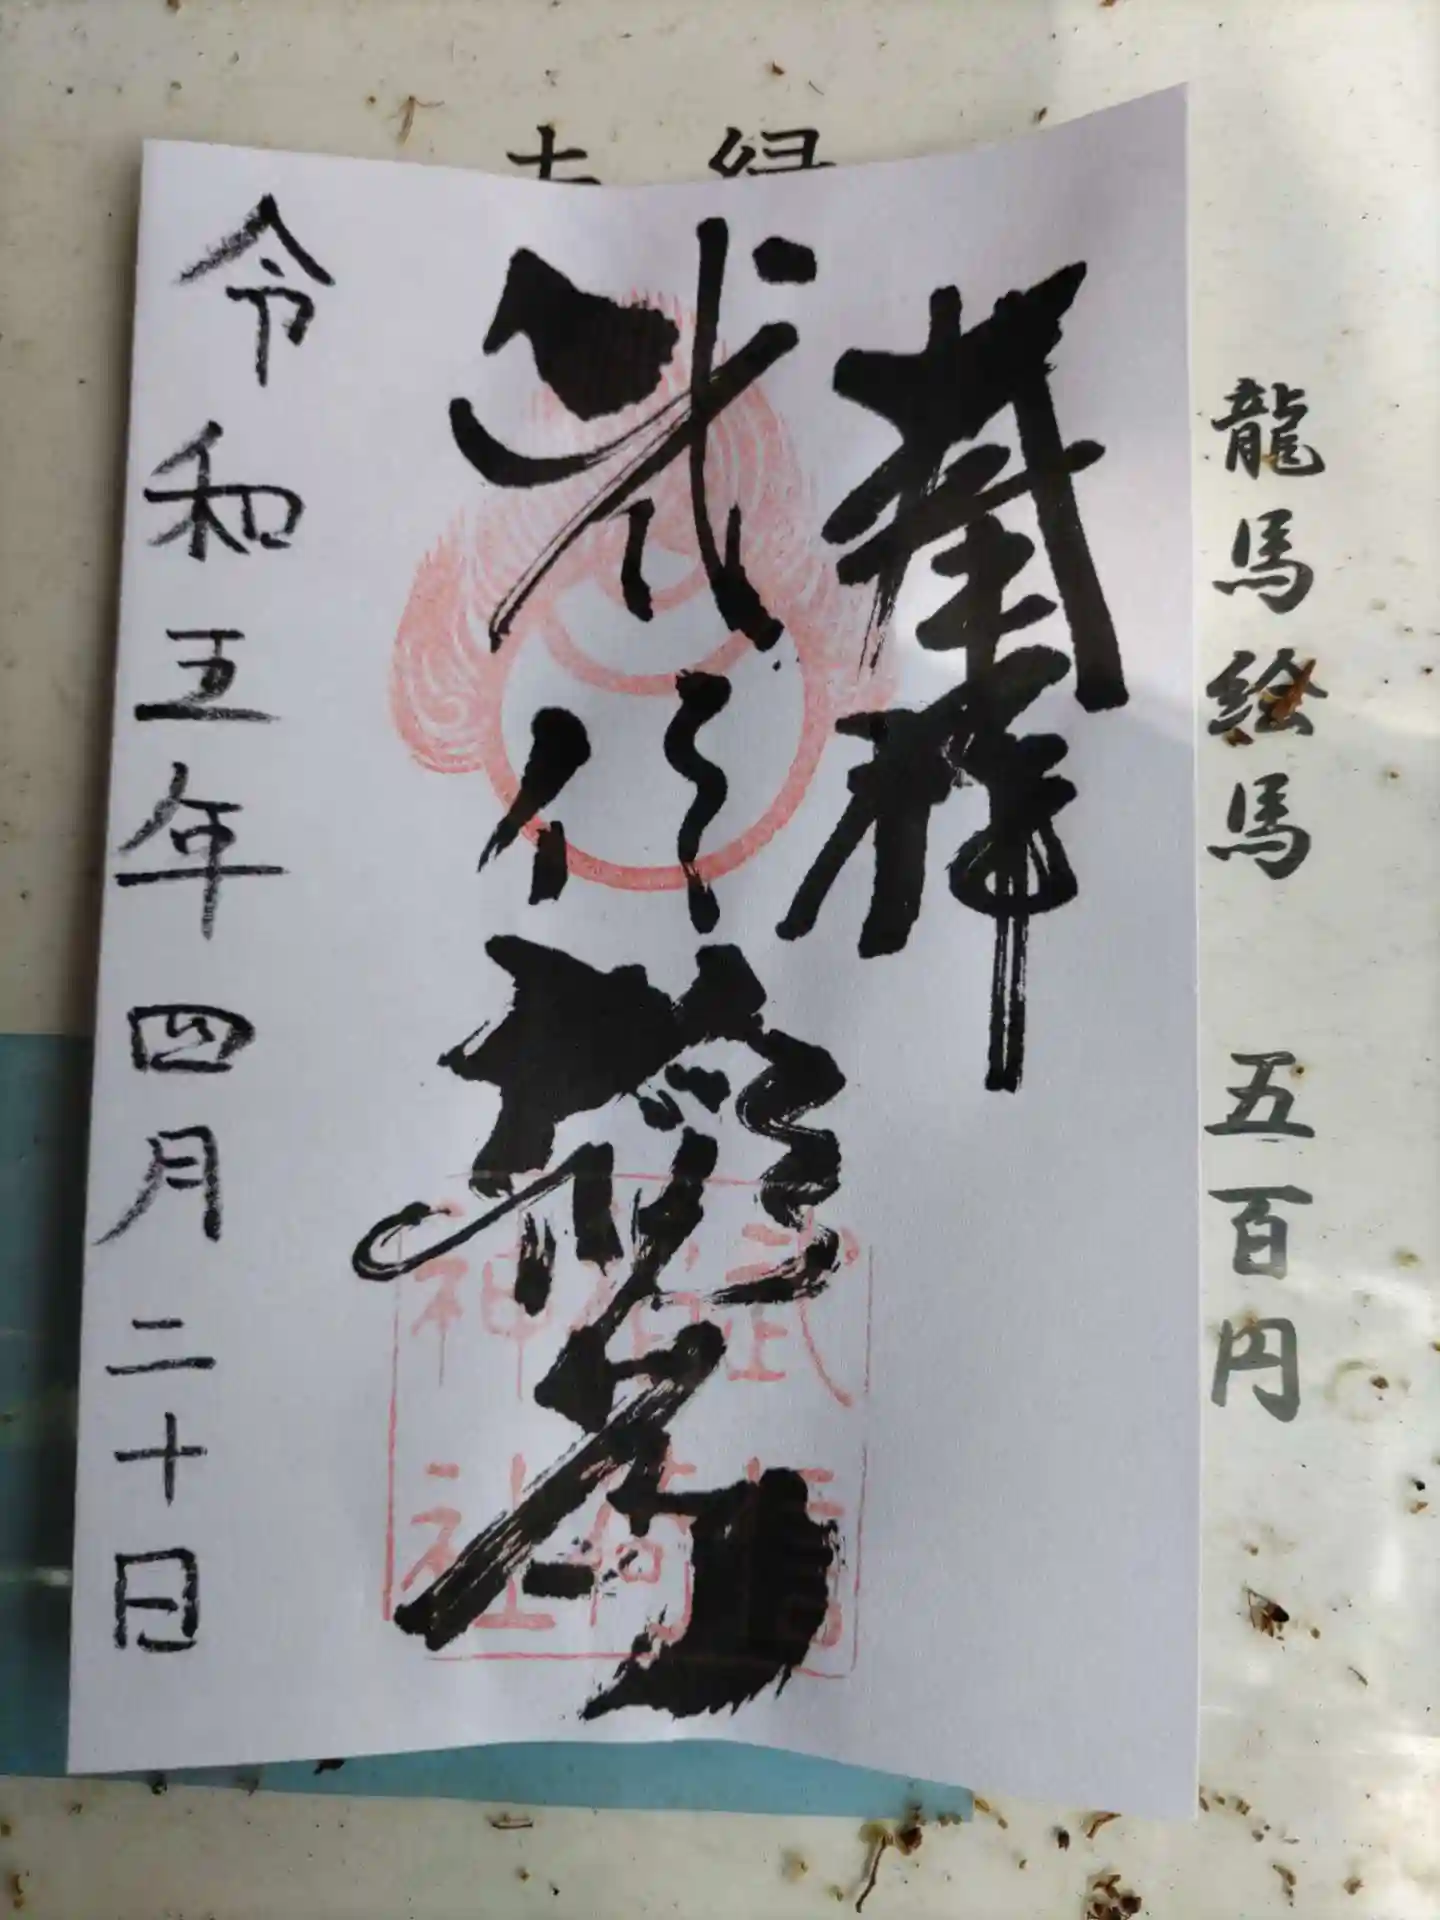 龍馬絵馬 五百円
奉拝
武信稲荷
武信
稲荷
神社
令和五年四月二十日